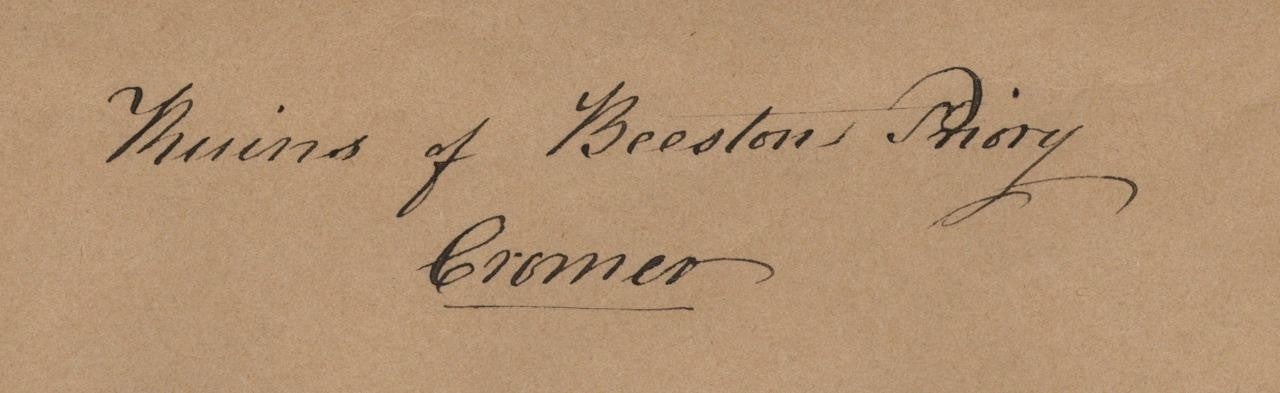 Ruins of Beeston Priory
Cromer